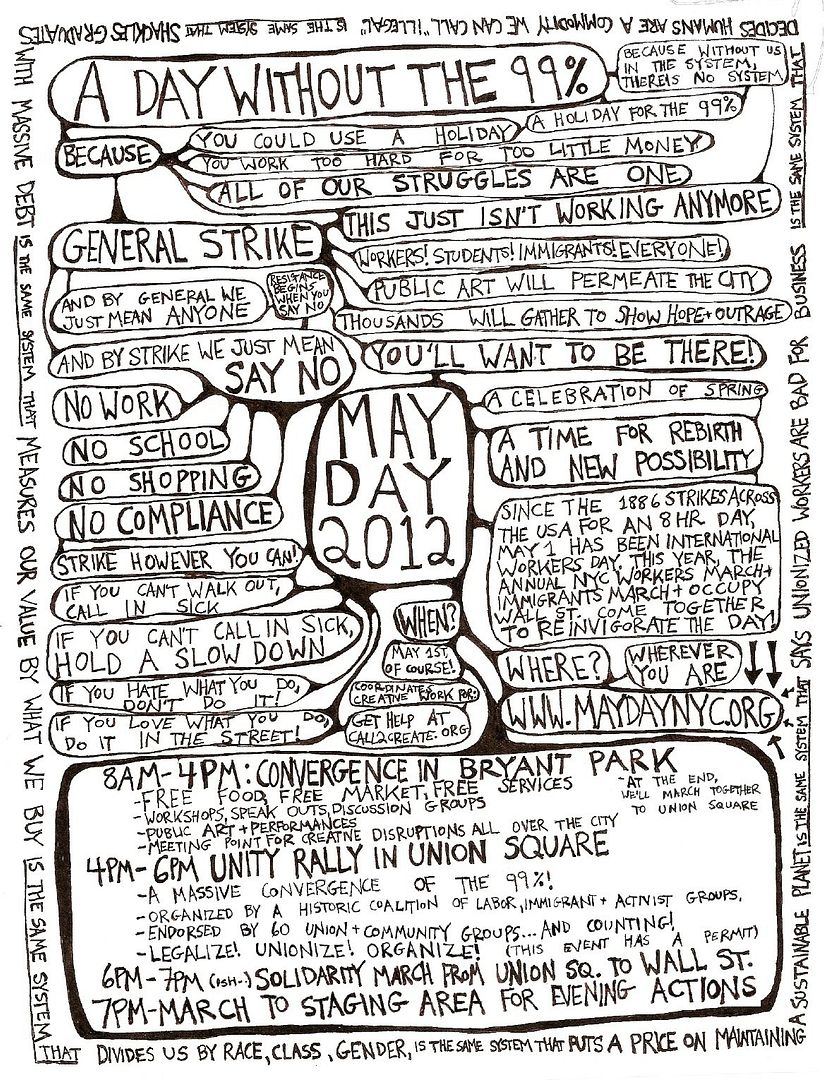 DECIDES HUMANS ARE A COMMODITY WE CAN CALL "ILLEGAL" IS THE SAME SYSTEM THAT SHACKLES GRADUATES
WITH MASSIVE DEBT IS THE SAME SYSTEM THAT MEASURES OUR VALUE BY WHAT WE BUY IS THE SAME SYSTEM
THAT DIVIDES US BY RACE, CLASS, GENDER, IS THE SAME SYSTEM THAT PUTS A PRICE ON MAINTAINING
A SUSTAINABLE PLANET IS THE SAME SYSTEM THAT SAYS UNIONIZED WORKERS ARE BAD FOR BUSINESS IS THE SAME SYSTEM THAT
A DAY WITHOUT THE 99%
BECAUSE WITHOUT US
IN THE SYSTEM,
THERE IS NO SYSTEM
BECAUSE
YOU COULD USE A HOLIDAY
A HOLIDAY FOR THE 99%
YOU WORK TOO HARD FOR TOO LITTLE MONEY
ALL OF OUR STRUGGLES ARE ONE
THIS JUST ISN'T WORKING ANYMORE
GENERAL STRIKE
WORKERS! STUDENTS! IMMIGRANTS! EVERYONE!
PUBLIC ART WILL PERMEATE THE CITY
THOUSANDS WILL GATHER TO SHOW HOPE + OUTRAGE
YOU'LL WANT TO BE THERE!
AND BY GENERAL WE
JUST MEAN ANYONE
RESISTANCE
BEGINS
WHEN YOU
SAY NO
AND BY STRIKE WE JUST MEAN
SAY NO
NO WORK
NO SCHOOL
NO SHOPPING
NO COMPLIANCE
STRIKE HOWEVER YOU CAN!
IF YOU CAN'T WALK OUT,
CALL IN SICK
IF YOU CAN'T CALL IN SICK,
HOLD A SLOW DOWN
IF YOU HATE WHAT YOU DO,
DON'T DO IT!
IF YOU LOVE WHAT YOU DO,
DO IT IN THE STREET!
MAY
DAY
2012
A CELEBRATION OF SPRING
A TIME FOR REBIRTH
AND NEW POSSIBILITY
SINCE THE 1886 STRIKES ACROSS
THE USA FOR AN 8 HR DAY,
MAY 1 HAS BEEN INTERNATIONAL
WORKERS DAY. THIS YEAR, THE
ANNUAL NYC WORKERS MARCH +
IMMIGRANTS MARCH + OCCUPY
WALL ST. COME TOGETHER
TO REINVIGORATE THE DAY!
WHEN?
MAY 1ST,
OF COURSE!
COORDINATES
CREATIVE WORK FOR:
GET HELP AT
CALL2CREATE.ORG
WHERE?
WHEREVER
YOU ARE
WWW.MAYDAYNYC.ORG
8AM-4PM: CONVERGENCE IN BRYANT PARK
-FREE FOOD, FREE MARKET, FREE SERVICES
-WORKSHOPS, SPEAK OUTS, DISCUSSION GROUPS
-PUBLIC ART + PERFORMANCES
-MEETING POINT FOR CREATIVE DISRUPTIONS ALL OVER THE CITY
-AT THE END,
WE'LL MARCH TOGETHER
TO UNION SQUARE
4PM-6PM UNITY RALLY IN UNION SQUARE
-A MASSIVE CONVERGENCE OF THE 99%!
-ORGANIZED BY A HISTORIC COALITION OF LABOR, IMMIGRANT + ACTIVIST GROUPS.
-ENDORSED BY 60 UNION + COMMUNITY GROUPS... AND COUNTING!
-LEGALIZE! UNIONIZE! ORGANIZE! (THIS EVENT HAS A PERMIT)
6PM-7PM (ISH-) SOLIDARITY MARCH FROM UNION SQ. TO WALL ST.
7PM-MARCH TO STAGING AREA FOR EVENING ACTIONS